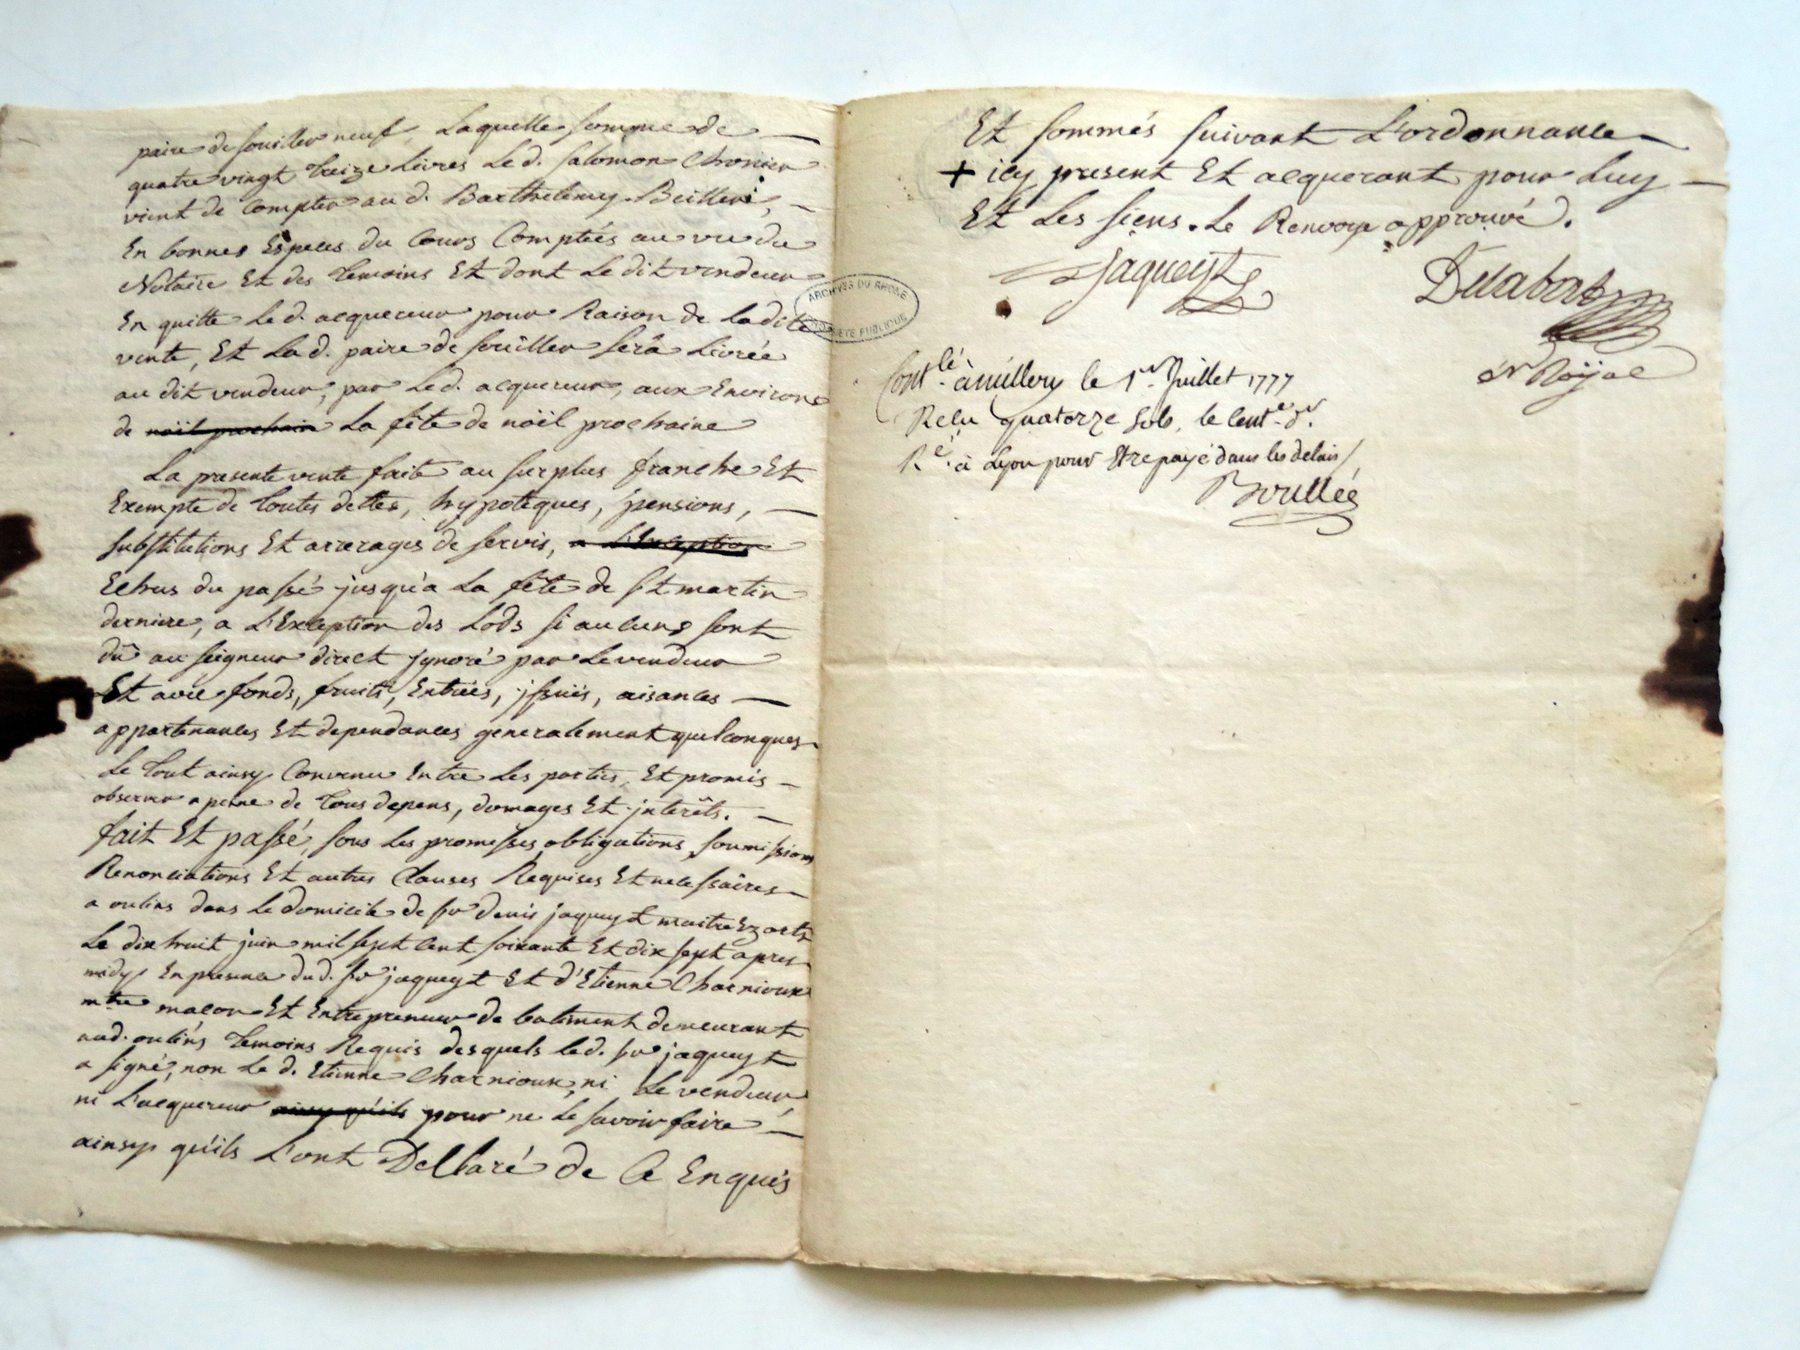 paire de soullier neuf, Laquelle somme de
quatre vingt treize Livres Le d. Salomon Chronier
vient de Compter au d. Barthelemy Beillieu,
En bonnes Especes du Cours Comptées au vu du
Notaire Et des Temoins Et dont Le dit vendeur
En quitte Le d. acquereur pour Raison de La dite
vente, Et La d. paire de soüillier serà Livrée
au dit vendeur, par Le d. acquereur, aux Environs
de noël prochain La fête de noël prochaine
La presente vente faite au surplus franche Et
Exempte de toutes dettes, hypoteques, pensions,
substitutions Et arrerages de servis, a L'Exception
Echus du passé jusqu'a La fête de St martin
derniere, a L'Exception des Lods si aucuns sont
dû au seigneur direct jgnoré par Le vendeur
Et avec fonds, fruits, Entrées, jssuës, aisances
appartenances Et dependances generalement quelconques
Le tout ainsy Convenu Entre Les parties, Et promis
observer a peine de tous depens, domages Et jnterêts.
fait Et passé, sous Les promesses, obligations, soumissions
Renonciations Et autres Clauses Requises Et necessaires
a oulins dans Le domicile de sr denis jaqueyt maitre Ez arts
Le dix huit juin mil sept cent soixante Et dix sept apres
midy En presence du d. sr jaqueyt Et d'Etienne Charnioux
mtre macon Et Entrepreneur de batiment demeurant
aud. oulins temoins Requis desquels le d. sr jaqueyt
a signé, non Le d. Etienne Charnioux, ni Le vendeur,
ni L'acquereur ainsy qu'ils pour ne Le savoir faire
ainsy qu'ils L'ont Declaré de Ce Enquis
Et sommés suivant L'ordonnance
+ icy present Et acquerant pour Luy
Et Les siens. Le Renvoye approuvé.
Jaqueyt
Delaborde
nr Royal
ARCHIVES DU RHONE
PROPRIETE PUBLIQUE
Contlé à millery le 1er Juillet 1777
Reçu quatorze sols, le Cent.e dr
Ré à Lyon pour Etre payé dans les delais
Boullée